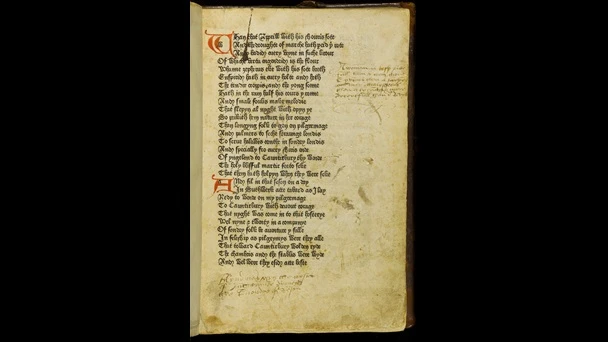 Whan that Apprill with his shouris sote
And the droughte of marche hath percid þe rote
And badid euery veyne in suche licour
Of whiche vertu engendrid is the flour
Whanne zepherus eke with his sote breth
Enspirid hath in euery holte and heth
The tendir croppis and the yong sonne
Hath in the ram half his cours y ronne
And smale foulis make melodie
That slepyn al nyght with opyn ye
So prikith hem nature in her corage
Than longyng folk to gon on pilgremage
And palmers to seche straunge londis
To serue halowis couthe in sondry londis
And specially fro euery shiris ende
Of yngelond to Cauntirbury thy wende
The holy blisful martir forto seke
That them hath holpyn when they were seke
And fil in that seson on a day
In Suthwerk atte tabard as I lay
Redy to wende on my pilgremage
To Cauntirbury with deuout corage
That nyght was come in to that hosterye
Wel nyne & twenty in a companye
Of sondry folk be auenture y falle
In feleship as pilgrymys were they alle
That toward Cauntirbury wolden ryde
The chambris and the stablis were wyde
And wel were they esid atte beste